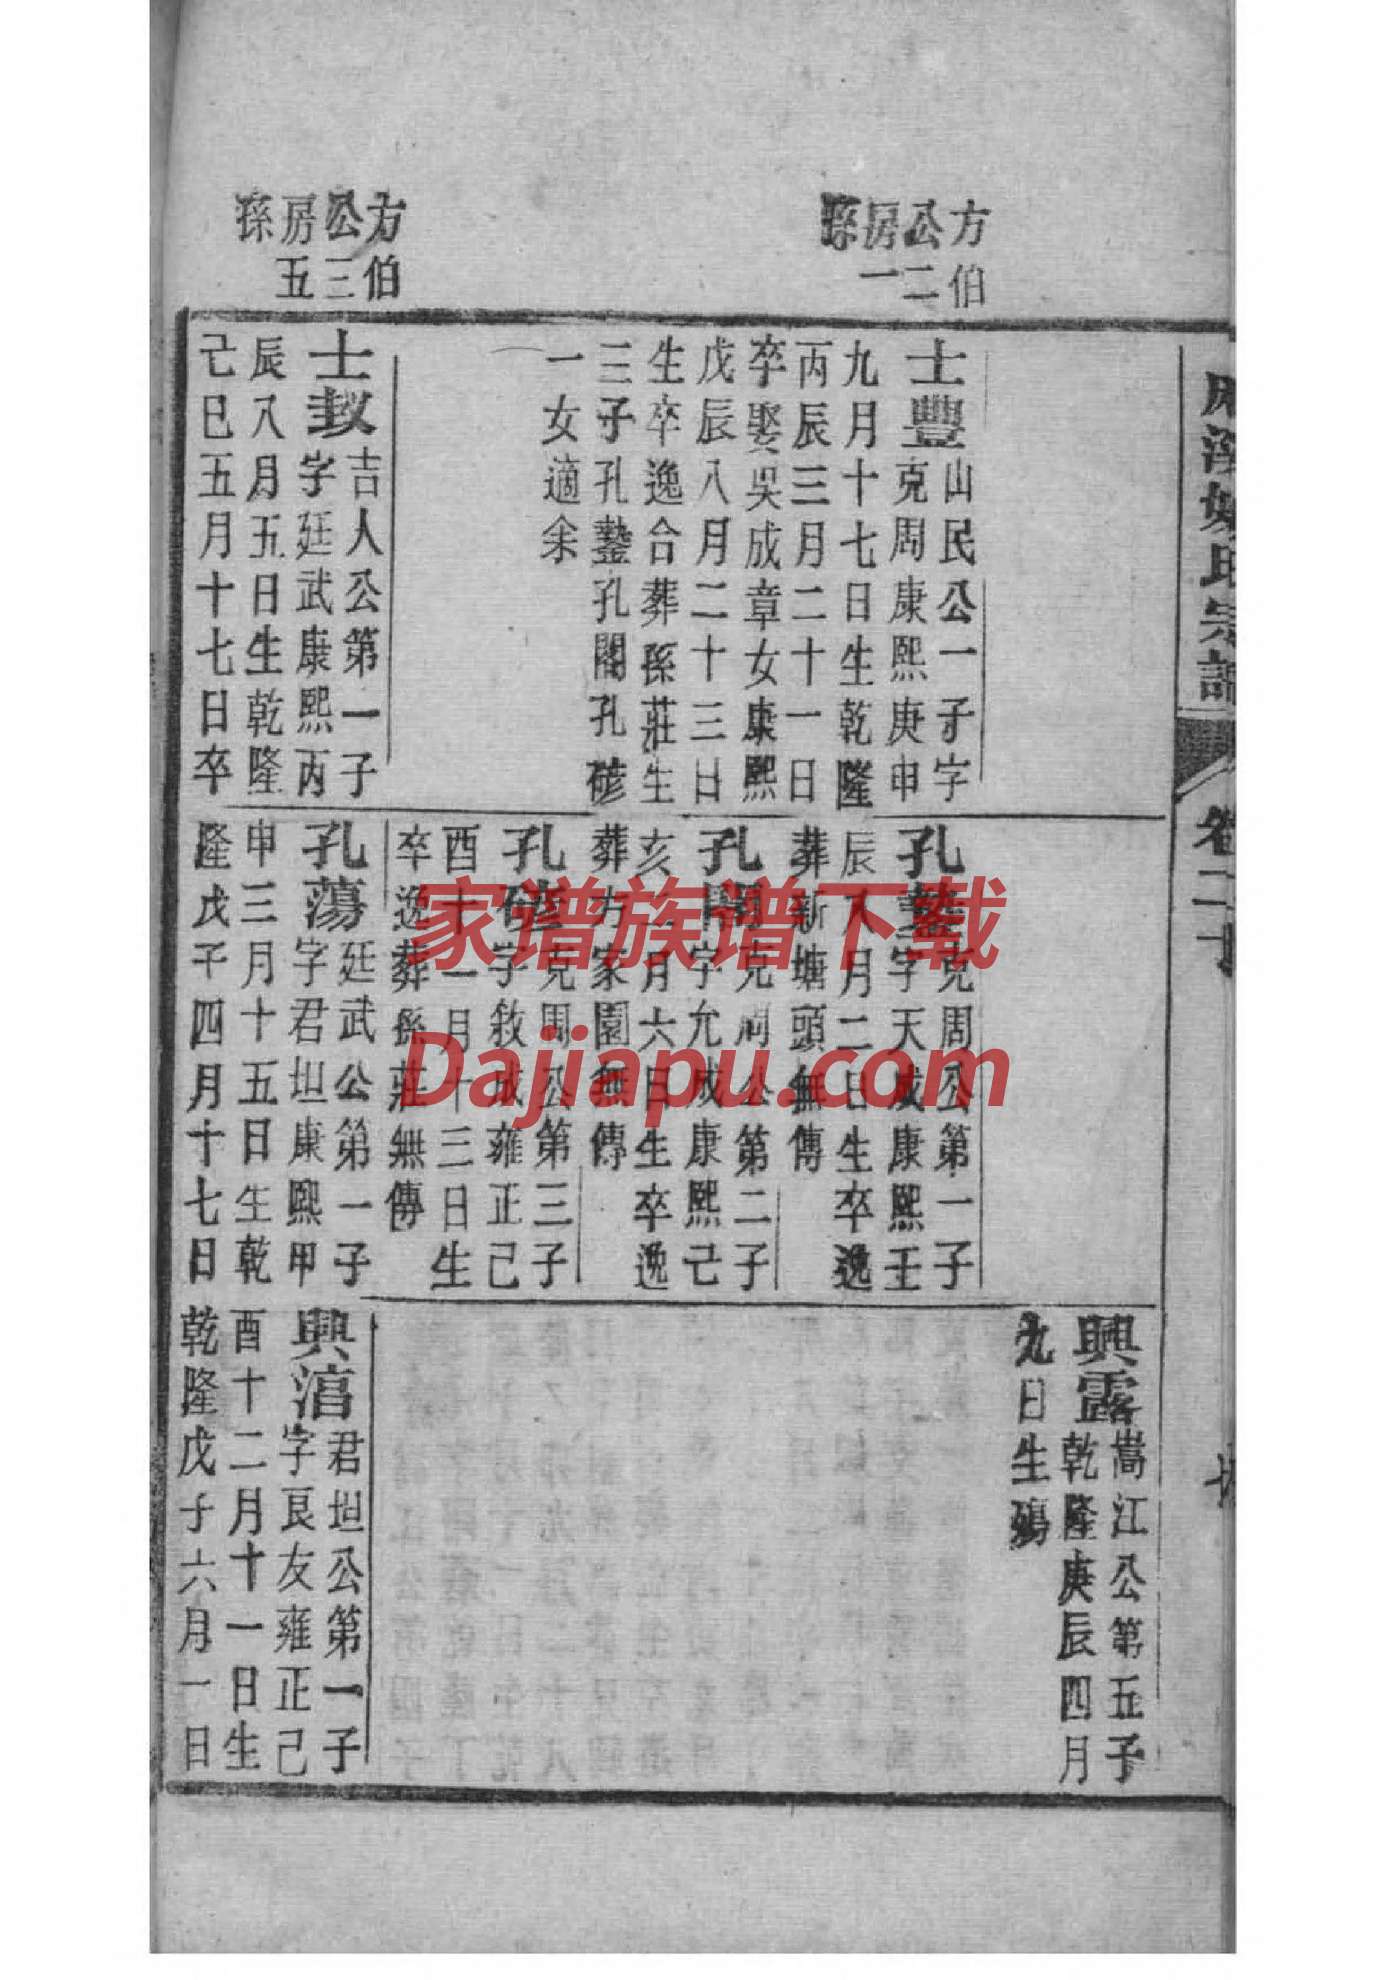 方伯
公二
房一
孫
士豐山民公一子字
克周康熙庚申
九月十七日生乾隆
丙辰三月二十一日
卒娶吳成章女康熙
戊辰八月二十三日
生卒逸合葬孫莊生
三子孔鏊孔閣孔
一女適余
方伯
公三
房五
孫
士 吉人公第一子
字廷武康熙丙
辰八月五日生乾隆
己巳五月十七日卒
孔 克周公第一子
字天成康熙壬
辰八月二日生卒逸
葬新塘頭無傳
孔 克周公第二子
字允成康熙己
亥 月六日生卒逸
葬方家園無傳
孔 克周公第三子
字敘成雍正己
酉十一月十三日生
卒逸葬孫莊無傳
孔蕩廷武公第一子
字君坦康熙甲
申三月十五日生乾
隆戊子四月十七日
興露嵩江公第五子
乾隆庚辰四月
九日生殤
興涫君坦公第一子
字良友雍正己
酉十二月十一日生
乾隆戊子六月一日
氏宗譜
卷二十
家谱族谱下载
Dajiapu.com